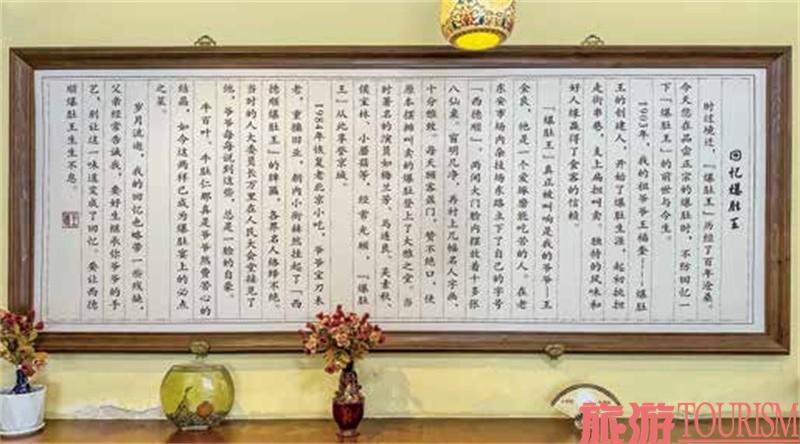 回忆爆肚王
时过境迁,『爆肚王』历经了百年沧桑。
今天您在品尝正宗的爆肚时,不妨回忆一
下『爆肚王』的前世与今生。
1903年,我的祖爷爷王福奎——爆肚
王的创建人,开始了爆肚生涯,起初挑担
走街串巷,支上扁担叫卖。独特的风味和
好人缘赢得了食客的信赖。
『爆肚王』真正被叫响是我的爷爷——王
金良,他是一个爱琢磨能吃苦的人。在老
东安市场内杂技场东路立下了自己的字号
『西德顺』。两间大门脸内摆放着十多张
八仙桌,窗明几净,再衬上几幅名人字画,
十分雅致。每天顾客盈门,赞不绝口,使
原本摆摊叫卖的爆肚登上了大雅之堂。当
时著名的演员如梅兰芳、马连良、吴素秋、
侯宝林、小蘑菇等,经常光顾,『爆肚
王』从此享誉京城。
1984年恢复老北京小吃,爷爷宝刀未
老,重操旧业,朝内小街赫然挂起了『西
德顺爆肚王』的牌匾,各界名人络绎不绝。
当时的人大委员长万里在人民大会堂接见了
他,爷爷每每说到这些,总是一脸的自豪。
牛百叶、牛肚仁那真是爷爷煞费苦心的
结晶,如今这两样已成为爆肚宴上的必点
之菜。
岁月流逝,我的回忆也略带一些残缺,
父亲经常告诫我,要好生继承你爷爷的手
艺,别让这一味道变成了回忆。要让西德
顺爆肚王生生不息。
旅游TOURISM